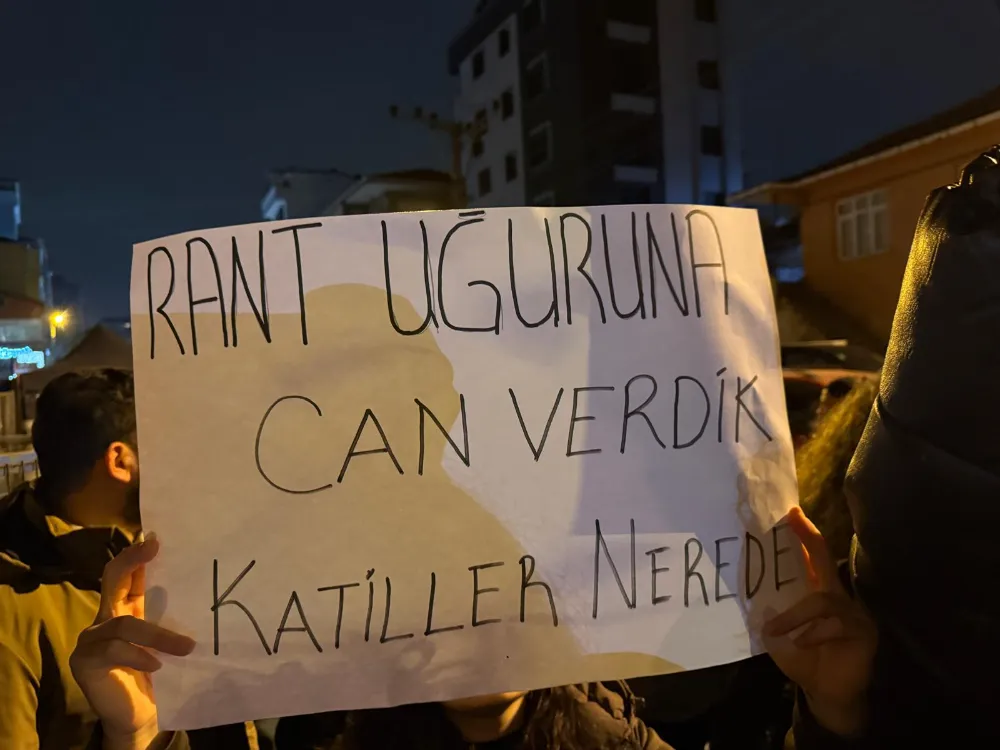 RANT UĞURUNA
CAN VERDİK
KATİLLER NEREDE